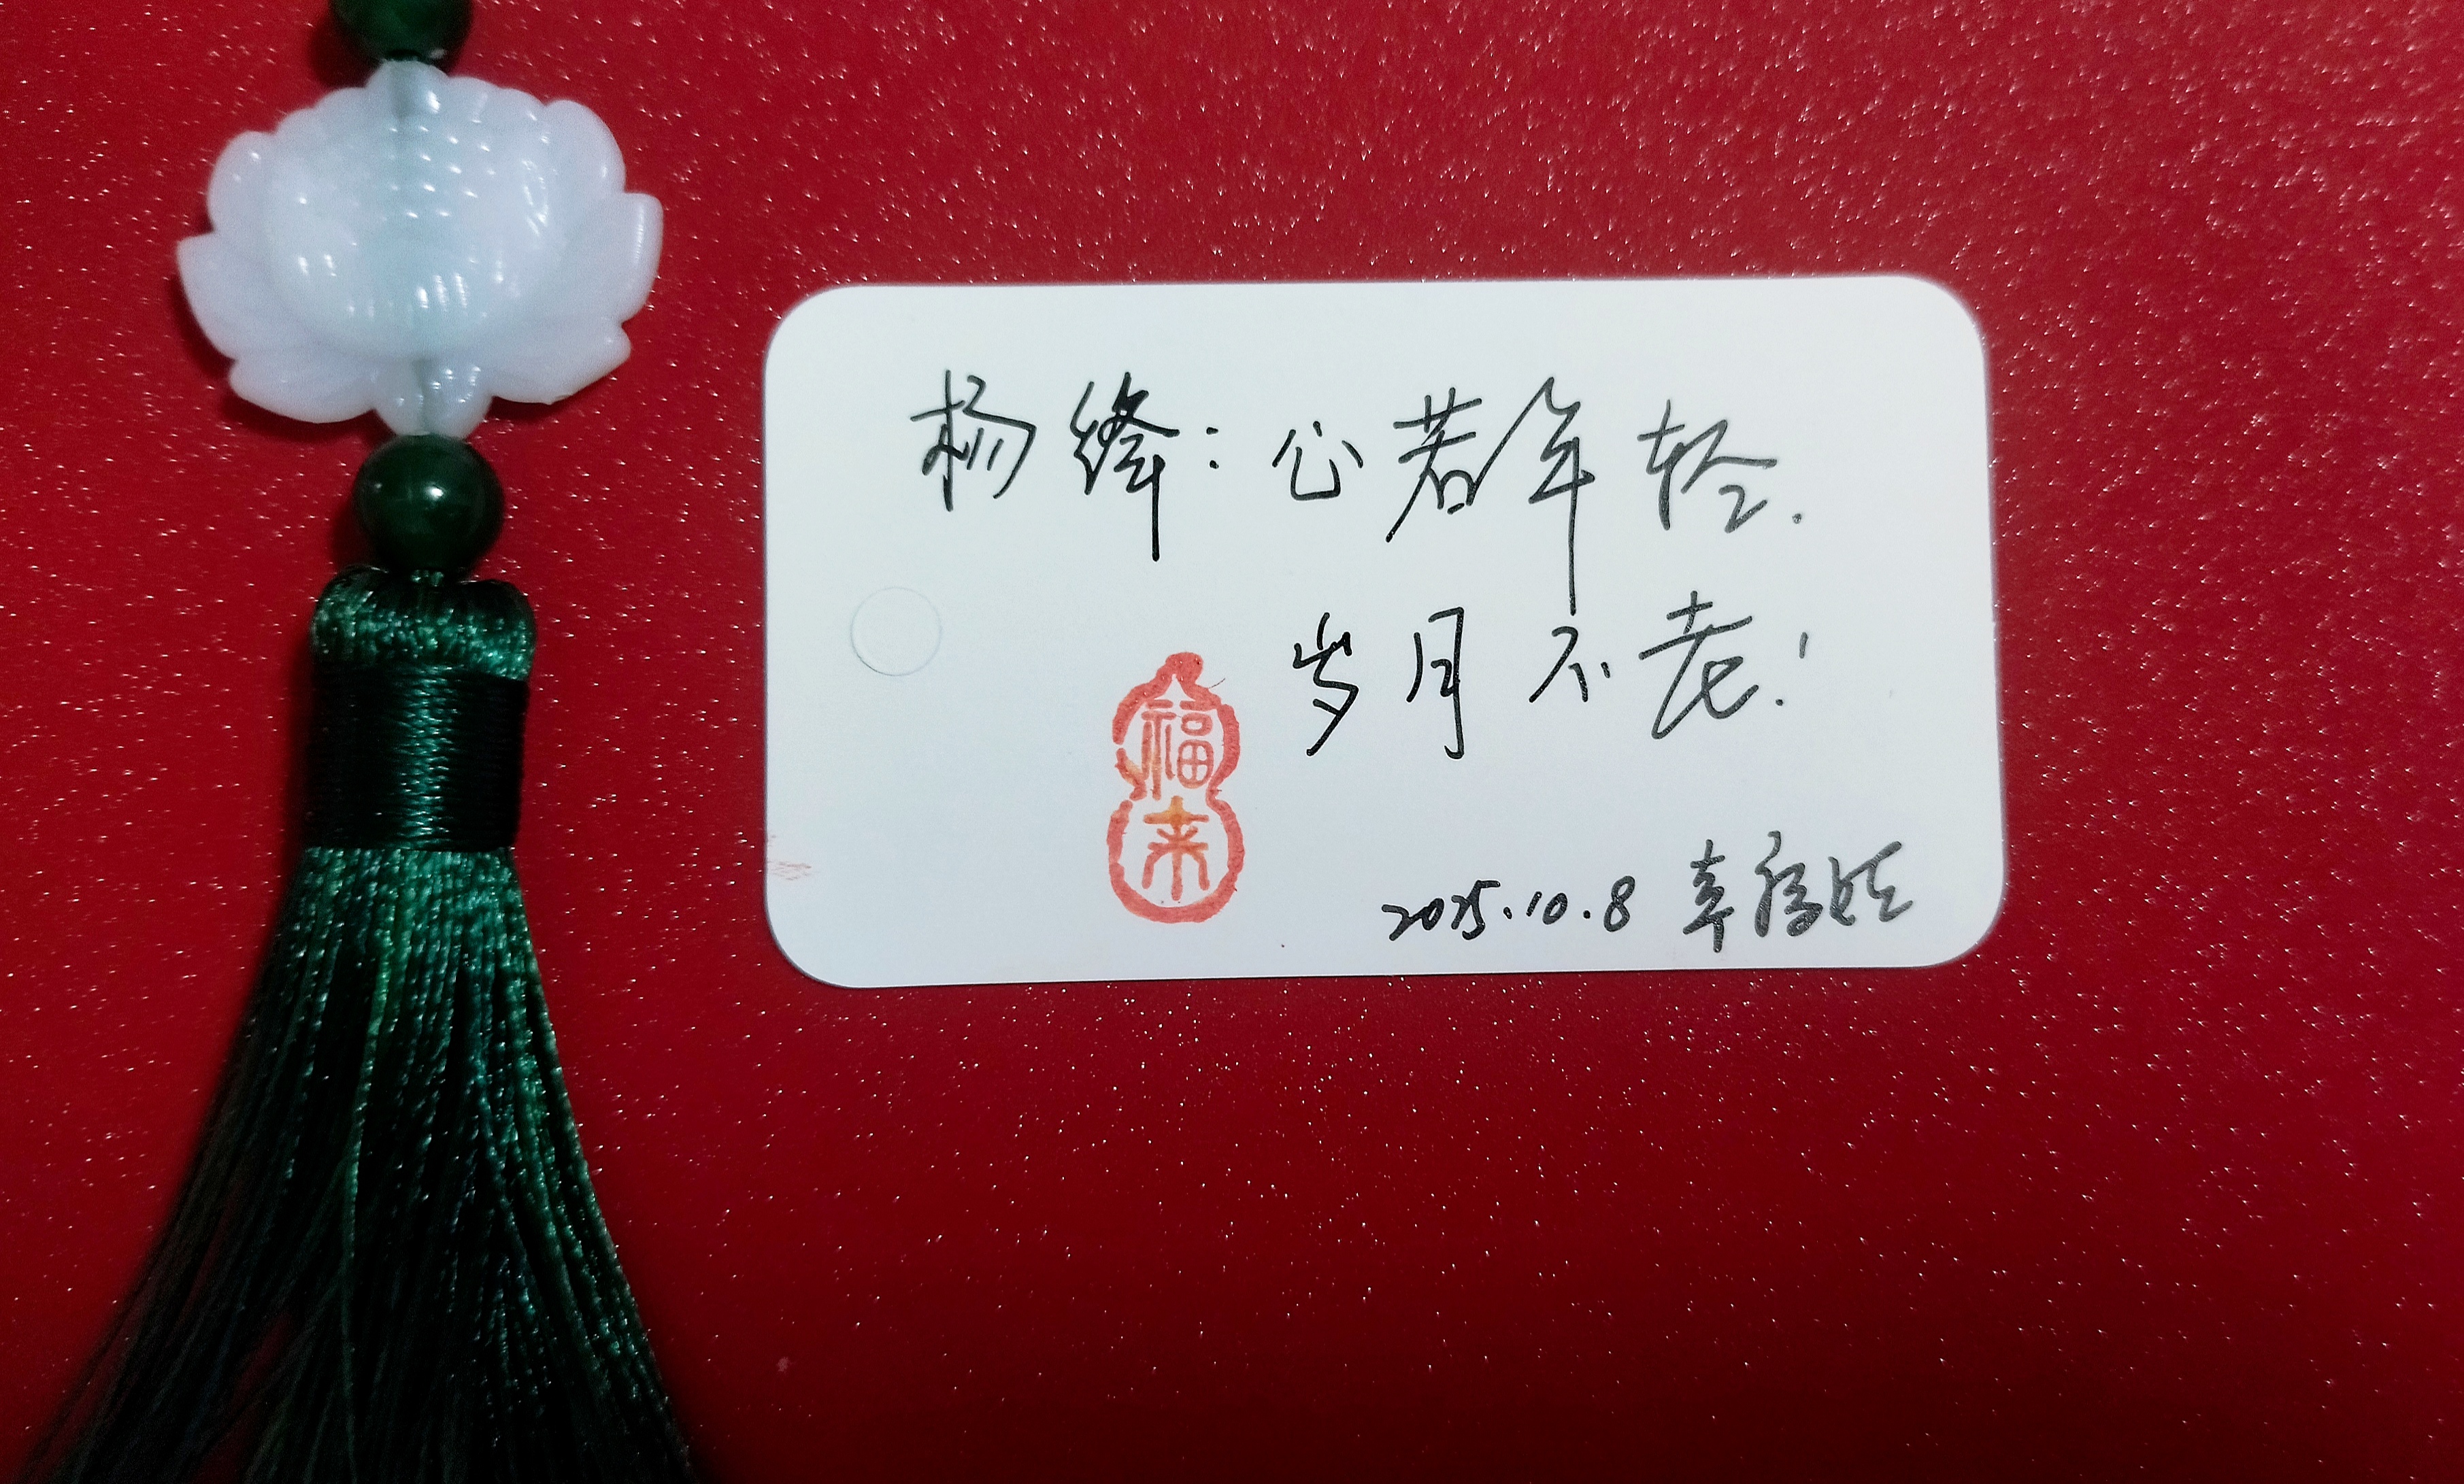 杨绛：心若年轻.
岁月不老！
福
来
2025.10.8 幸福娃